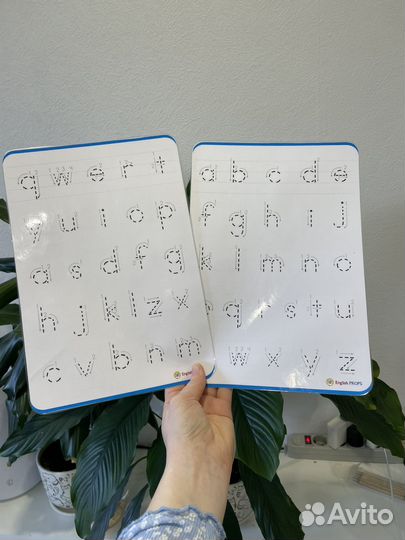 q w e r t
y u i o p
a s d f g
h j k l z x
c v b n m
a b c d e
f g h i j
k l m n o
q r s t u
w x y z
English PROPS
Avito